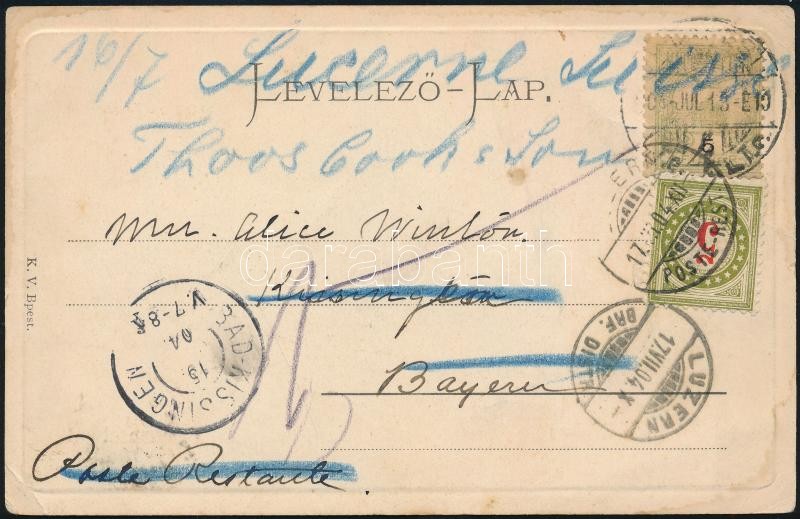 16/7 Lucerne Suisse
LEVELEZŐ-LAP.
Thoos Cook & Son
Mrs. Alice Winton.
Kissingen
Bayern
Poste Restante
K. V. Bpest.
BAD-KISSINGEN
V.7-8
19.
04.
JUL 13-E10
5
5
17.VII.04-10
POSTE REST.
LUZERN
17.VII.04.X
BRF. DIST.
darabanth